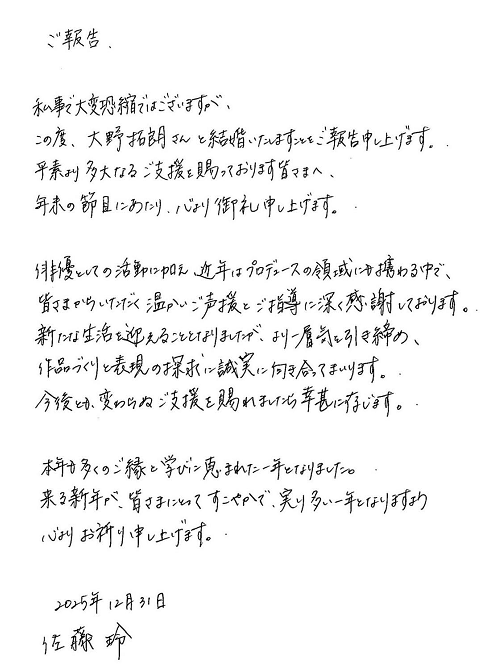 ご報告、
私事で大変恐縮ではございますが、
この度、大野拓朗さんと結婚いたしますことをご報告申し上げます。
平素より多大なるご支援を賜っております皆さまへ、
年末の節目にあたり、心より御礼申し上げます。
俳優としての活動に加え、近年はプロデュースの領域にも携わる中で、
皆さまからいただく温かいご声援とご指導に深く感謝しております。
新たな生活を迎えることとなりましたが、より一層気を引き締め、
作品づくりと表現の探求に誠実に向き合ってまいります。
今後とも、変わらぬご支援を賜れましたら幸甚に存じます。
本年も多くのご縁と学びに恵まれた一年となりました。
来る新年が、皆さまにとってすこやかで、実り多い一年となりますよう
心よりお祈り申し上げます。
2025年12月31日
佐藤玲